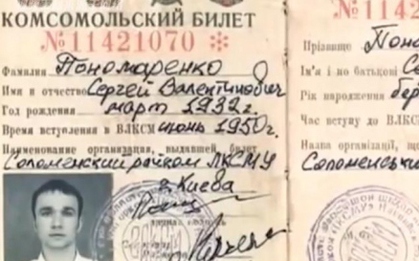 КОМСОМОЛЬСКИЙ БИЛЕТ
№ 11421070
Фамилия Пономаренко
Имя и отчество Сергей Валентинович
Год рождения март 1932 г.
Время вступления в ВЛКСМ июнь 1950 г.
Наименование организации, выдавшей билет
Соломенский райком ЛКСМУ
г. Киева
№ 1142
Прізвище Поно
Ім'я і по батькові
Рік народження бер
Час вступу до ВЛКСМ
Назва організації, що
Соломенськ